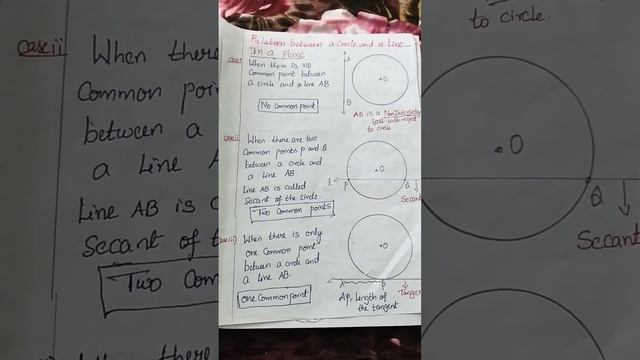 Relation between a Circle and a Line
In a plane
Case i
When there is no
Common point between
a circle and a line AB
No Common point
A
B
O
AB is a Non Intersecting
Line with respect
to circle
Case ii
When there are two
Common points P and Q
between a circle and
a Line AB
Line AB is called
Secant of the circle.
Two Common points
O
P
Q
Secant
Case iii
When there is only
one Common point
between a circle and
a line AB.
one Common point
O
A
P
Tangent
AP = Length of
the tangent
Case ii
When there
Common poin
between a
a Line
Line AB is c
Secant of t
Two Com
to circle.
O
Q
Secant